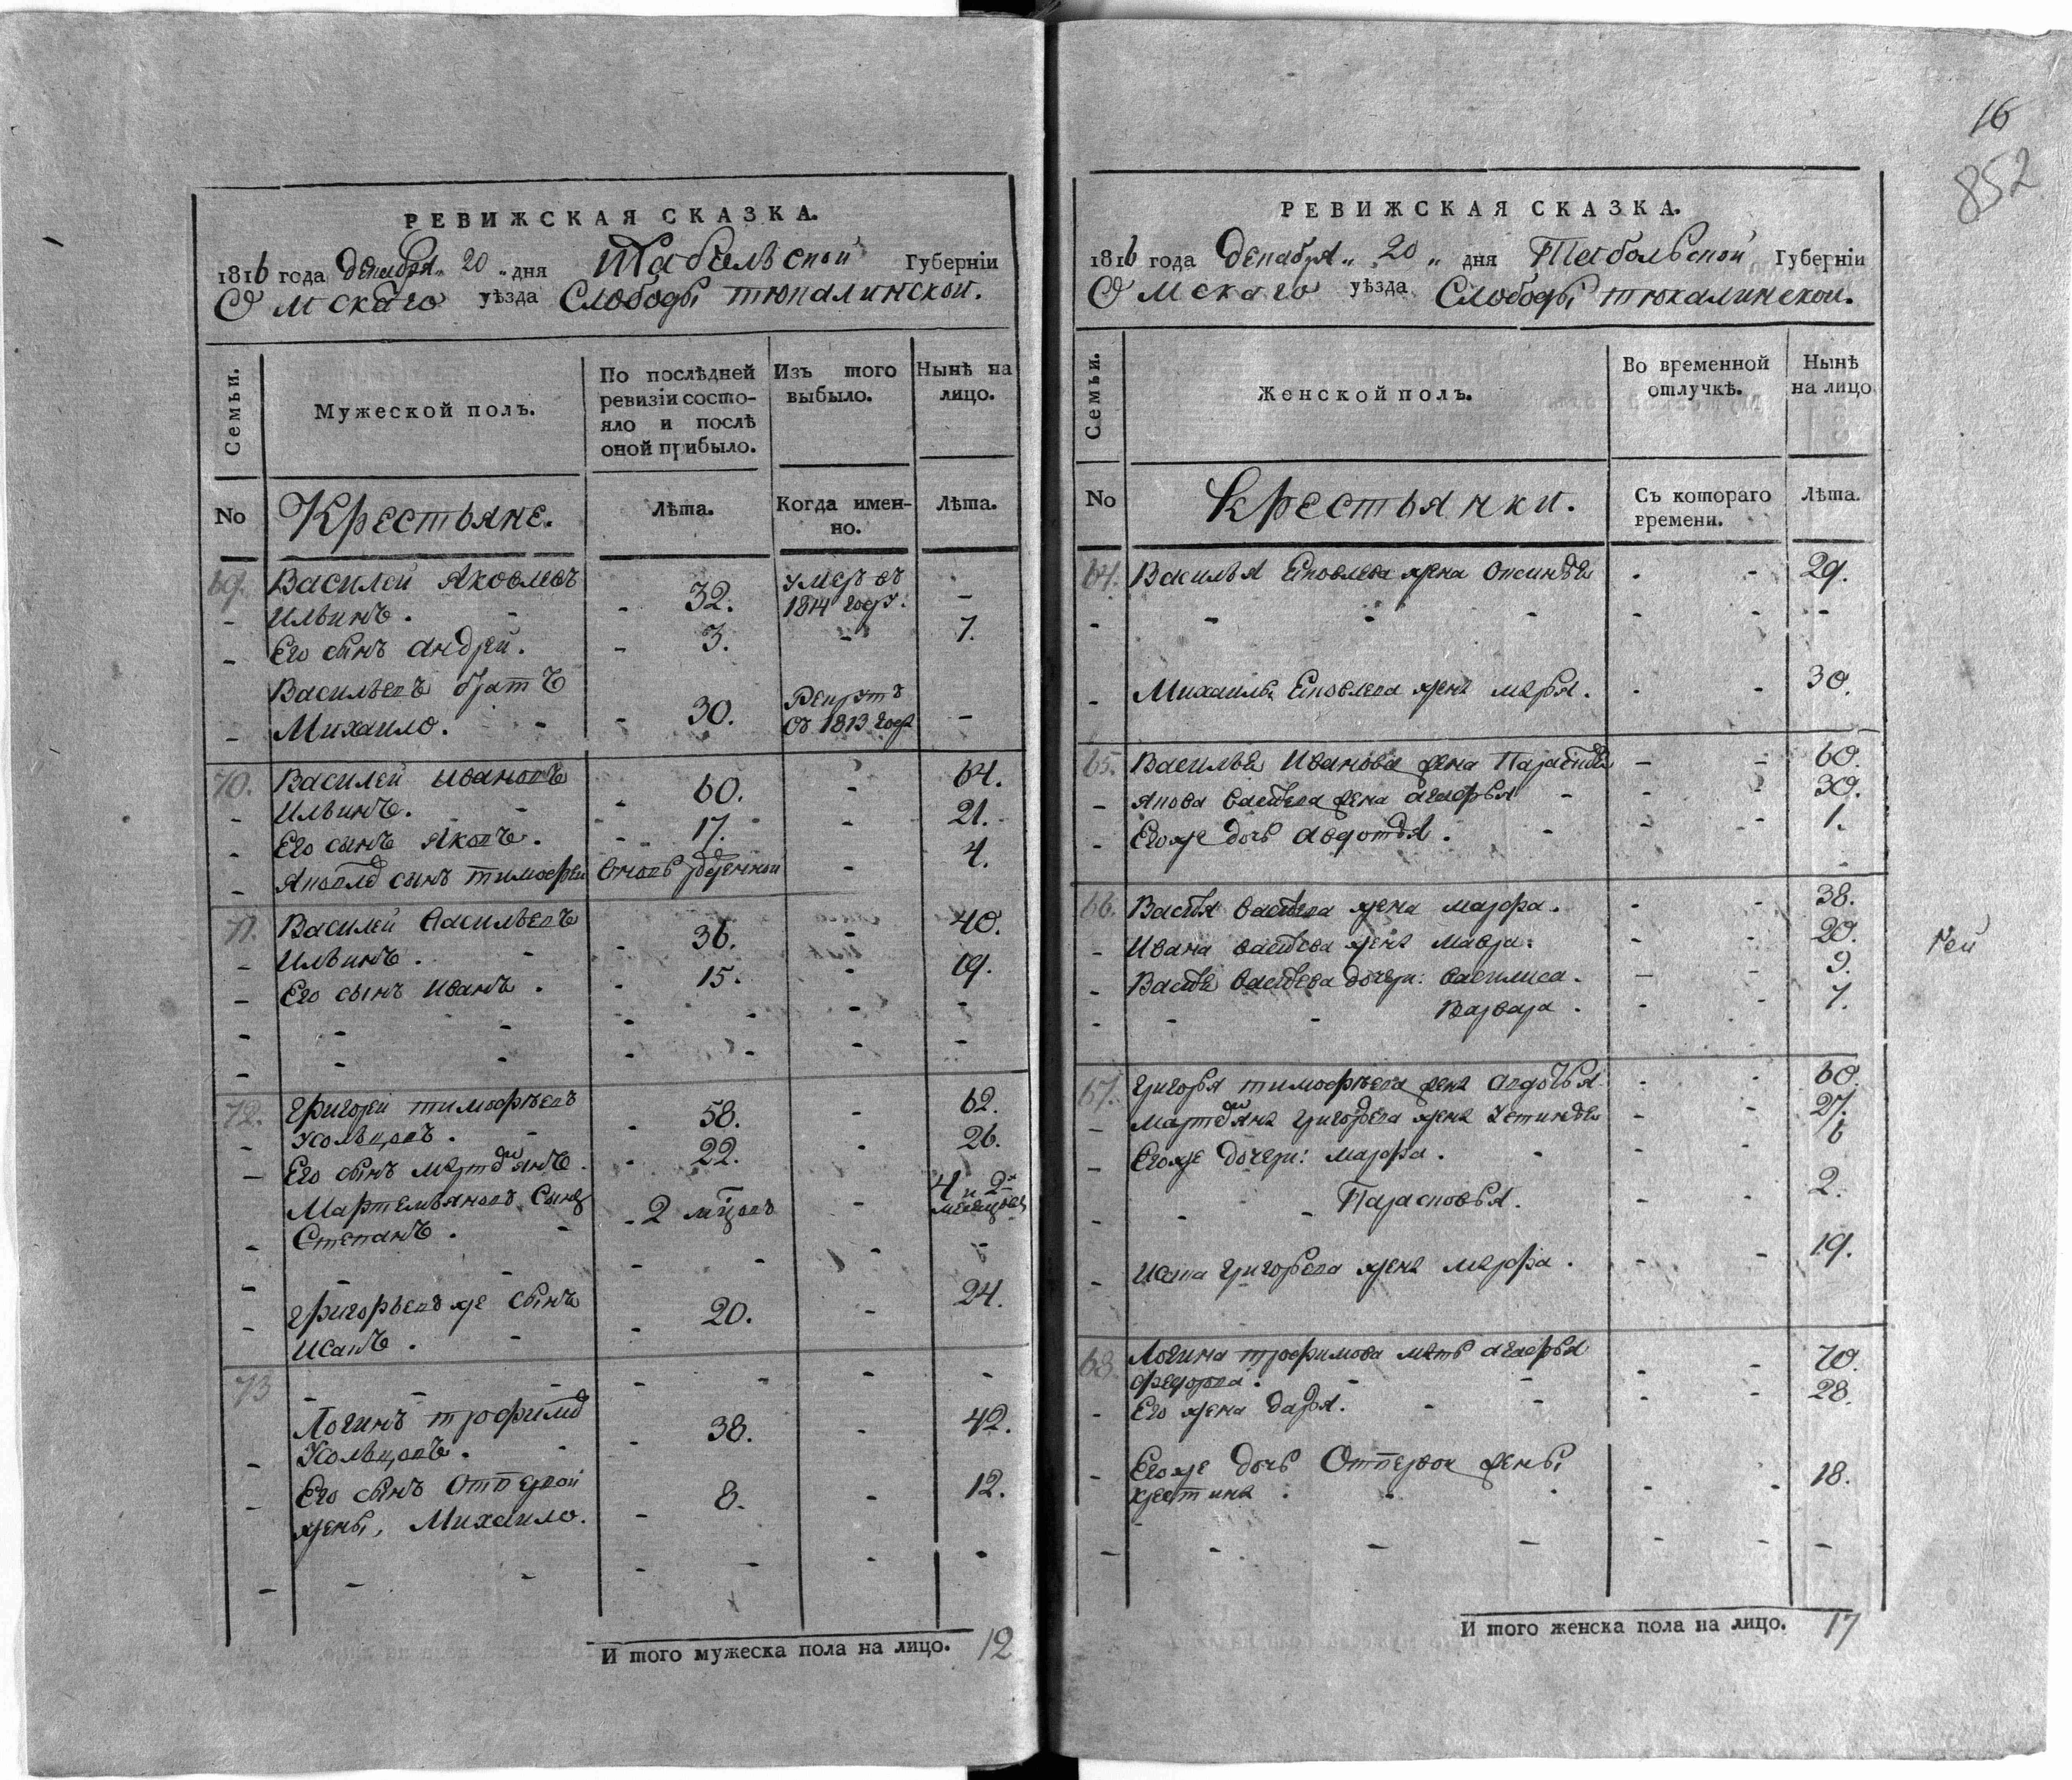 РЕВИЖСКАЯ СКАЗКА.
1816 года декабря „ 20 „ дня Табольской Губерніи
Омскаго уѣзда Слободы тюкалинской.
Семьи.
Мужеской полъ.
По послѣдней ревизіи состо-
яло и послѣ
оной прибыло.
Изъ того
выбыло.
Нынѣ на
лицо.
No Крестьяне. Лѣта. Когда имен-
но. Лѣта.
69. Василей Яковлевъ
Ильинъ. 32. умеръ въ
1814 году. -
Его сынъ андрей. 3. - 7.
Васильевъ братъ
Михаило. 30. Рекрутъ
въ 1813 году -
70. Василей ивановъ
Ильинъ. 60. - 64.
Его сынъ Яковъ. 17. - 21.
Яковлевъ сынъ тимофей вновь рожденной - 4.
71. Василей васильевъ
Ильинъ. 36. - 40.
Его сынъ иванъ. 15. - 19.
72. григорей тимофѣевъ
Кольцовъ. 58. - 62.
Его сынъ мартемьянъ. 22. - 26.
Мартемьяновъ сынъ
Степанъ. 2 мцовъ - 4 и 2х
месецовъ
григорьевъ же сынъ
Исакъ. 20. - 24.
73
Логинъ трофимовъ
Кольцовъ. 38. - 42.
Его сынъ отпервой
жены, Михаило. 8. - 12.
И того мужеска пола на лицо. 12
16
852
РЕВИЖСКАЯ СКАЗКА.
1816 года декабря „ 20 „ дня Табольской Губерніи
Омскаго уѣзда Слободы тюкалинской.
Семьи.
Женской полъ.
Во временной
отлучкѣ.
Нынѣ
на лицо
No Крестьянки. Съ котораго
времени. Лѣта.
64. Василья Яковлева жена 29.
Михаилы Яковлева жена марья. 30.
65. Василья Иванова жена Парасковья 60.
якова васильева жена агафья 30.
Егоже дочь авдотья. 1.
66. Василья васильева жена марфа. 38.
Ивана васильева жена мавра. 20.
Василья васильева дочери: василиса. 9.
Варвара. 7.
67. григорья тимофѣева жена авдотья 60.
мартемьяна григорьева жена устинья 27.
Егоже дочери: марфа. 6
Парасковья. 2.
Исака григорьева жена марфа. 19.
68. Логина трофимова мать агафья
федорова. 70.
Его жена дарья. 28.
Егоже дочь отпервой жены,
хрестина. 18.
И того женска пола на лицо. 17